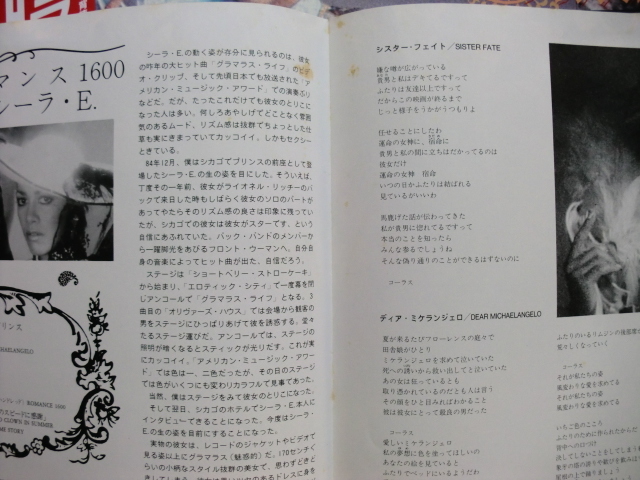 マンス 1600
シーラ・E.
シーラ・E.の動く姿が存分に見られるのは、彼女
の昨年の大ヒット曲「グラマラス・ライフ」のビデ
オ・クリップ、そして先頃日本でも放送された「ア
メリカン・ミュージック・アワード」での演奏ぶり
などだ。だが、たったこれだけでも彼女のとりこに
なった人は多い。何しろあやしげでどことなく雰囲
気のあるムード。リズム感は抜群でちょっとした仕
草も実にきまっていてカッコイイ。しかもセクシー
ときている。
84年12月、僕はシカゴでプリンスの前座として登
場したシーラ・E.の生の姿を目にした。そういえば、
丁度その一年前、彼女がライオネル・リッチーのバ
ックで来日した時もしばらく彼女のソロのパートが
あってやたらそのリズム感の良さは印象に残ってい
たが、シカゴでの彼女は彼女がスターです、という
自信にあふれていた。バック・バンドのメンバーか
ら一躍脚光をあびるフロント・ウーマンへ。自分自
身の音楽によってヒット曲が出た、自信だろう。
ステージは「ショートベリー・ストローケーキ」
から始まり、「エロティック・シティ」で一度幕を閉
じアンコールで「グラマラス・ライフ」となる。3
曲目の「オリヴァーズ・ハウス」では会場から観客の
男をステージにひっぱりあげて彼を誘惑する。堂々
たるステージ運びだ。アンコールでは、ステージの
照明が暗くなるとスティックが光りだす。これが実
にカッコイイ。「アメリカン・ミュージック・アワー
ド」では色は一、二色だったが、その日のステージ
では色がいくつにも変わりカラフルで見事であった。
当然、僕はステージをみて彼女のとりこになった。
そして翌日、シカゴのホテルでシーラ・E.本人に
インタビューできることになった。今度はシーラ・
E.の生の姿を目前にすることになった。
実物の彼女は、レコードのジャケットやビデオで
見る姿以上にグラマラス(魅惑的)だ。170センチく
らいの小柄なスタイル抜群の美女で、思わずどきど
シスター・フェイト/SISTER FATE
嫌な噂が広がっている
貴男と私はデキてるですって
ふたりは友達以上ですって
だからこの映画が終るまで
じっと様子をうかがうつもりよ
任せることにしたわ
運命の女神に、宿命に
貴男と私の間に立ちはだかってるのは
彼女だけ
運命の女神 宿命
いつの日かふたりは結ばれる
見ているがいいわ
馬鹿げた話が伝わってきた
私が貴男に惚れてるですって
本当のことを知ったら
みんな参るでしょうね
そんな偽り通りのことができるはずないのに
コーラス
ディア・ミケランジェロ/DEAR MICHAELANGELO
夏が来るたびフローレンスの庭々で
田舎娘がひとり
ミケランジェロを求めて泣いていた
死への誘いから救い出してと泣いていた
あの女は狂っているとも
取り憑かれているのだとも人は言う
その顔をひと目みればわかること
彼は彼女にとって最良の男だった
コーラス
愛しいミケランジェロ
私の夢想に色を塗ってほしいの
あなたの絵を見ていると
ふたりでベッドにいるようだわ
コーラス
それが私たちの姿
風変わりな愛を求めてる
それが私たちの姿
風変わりな愛を求めてる